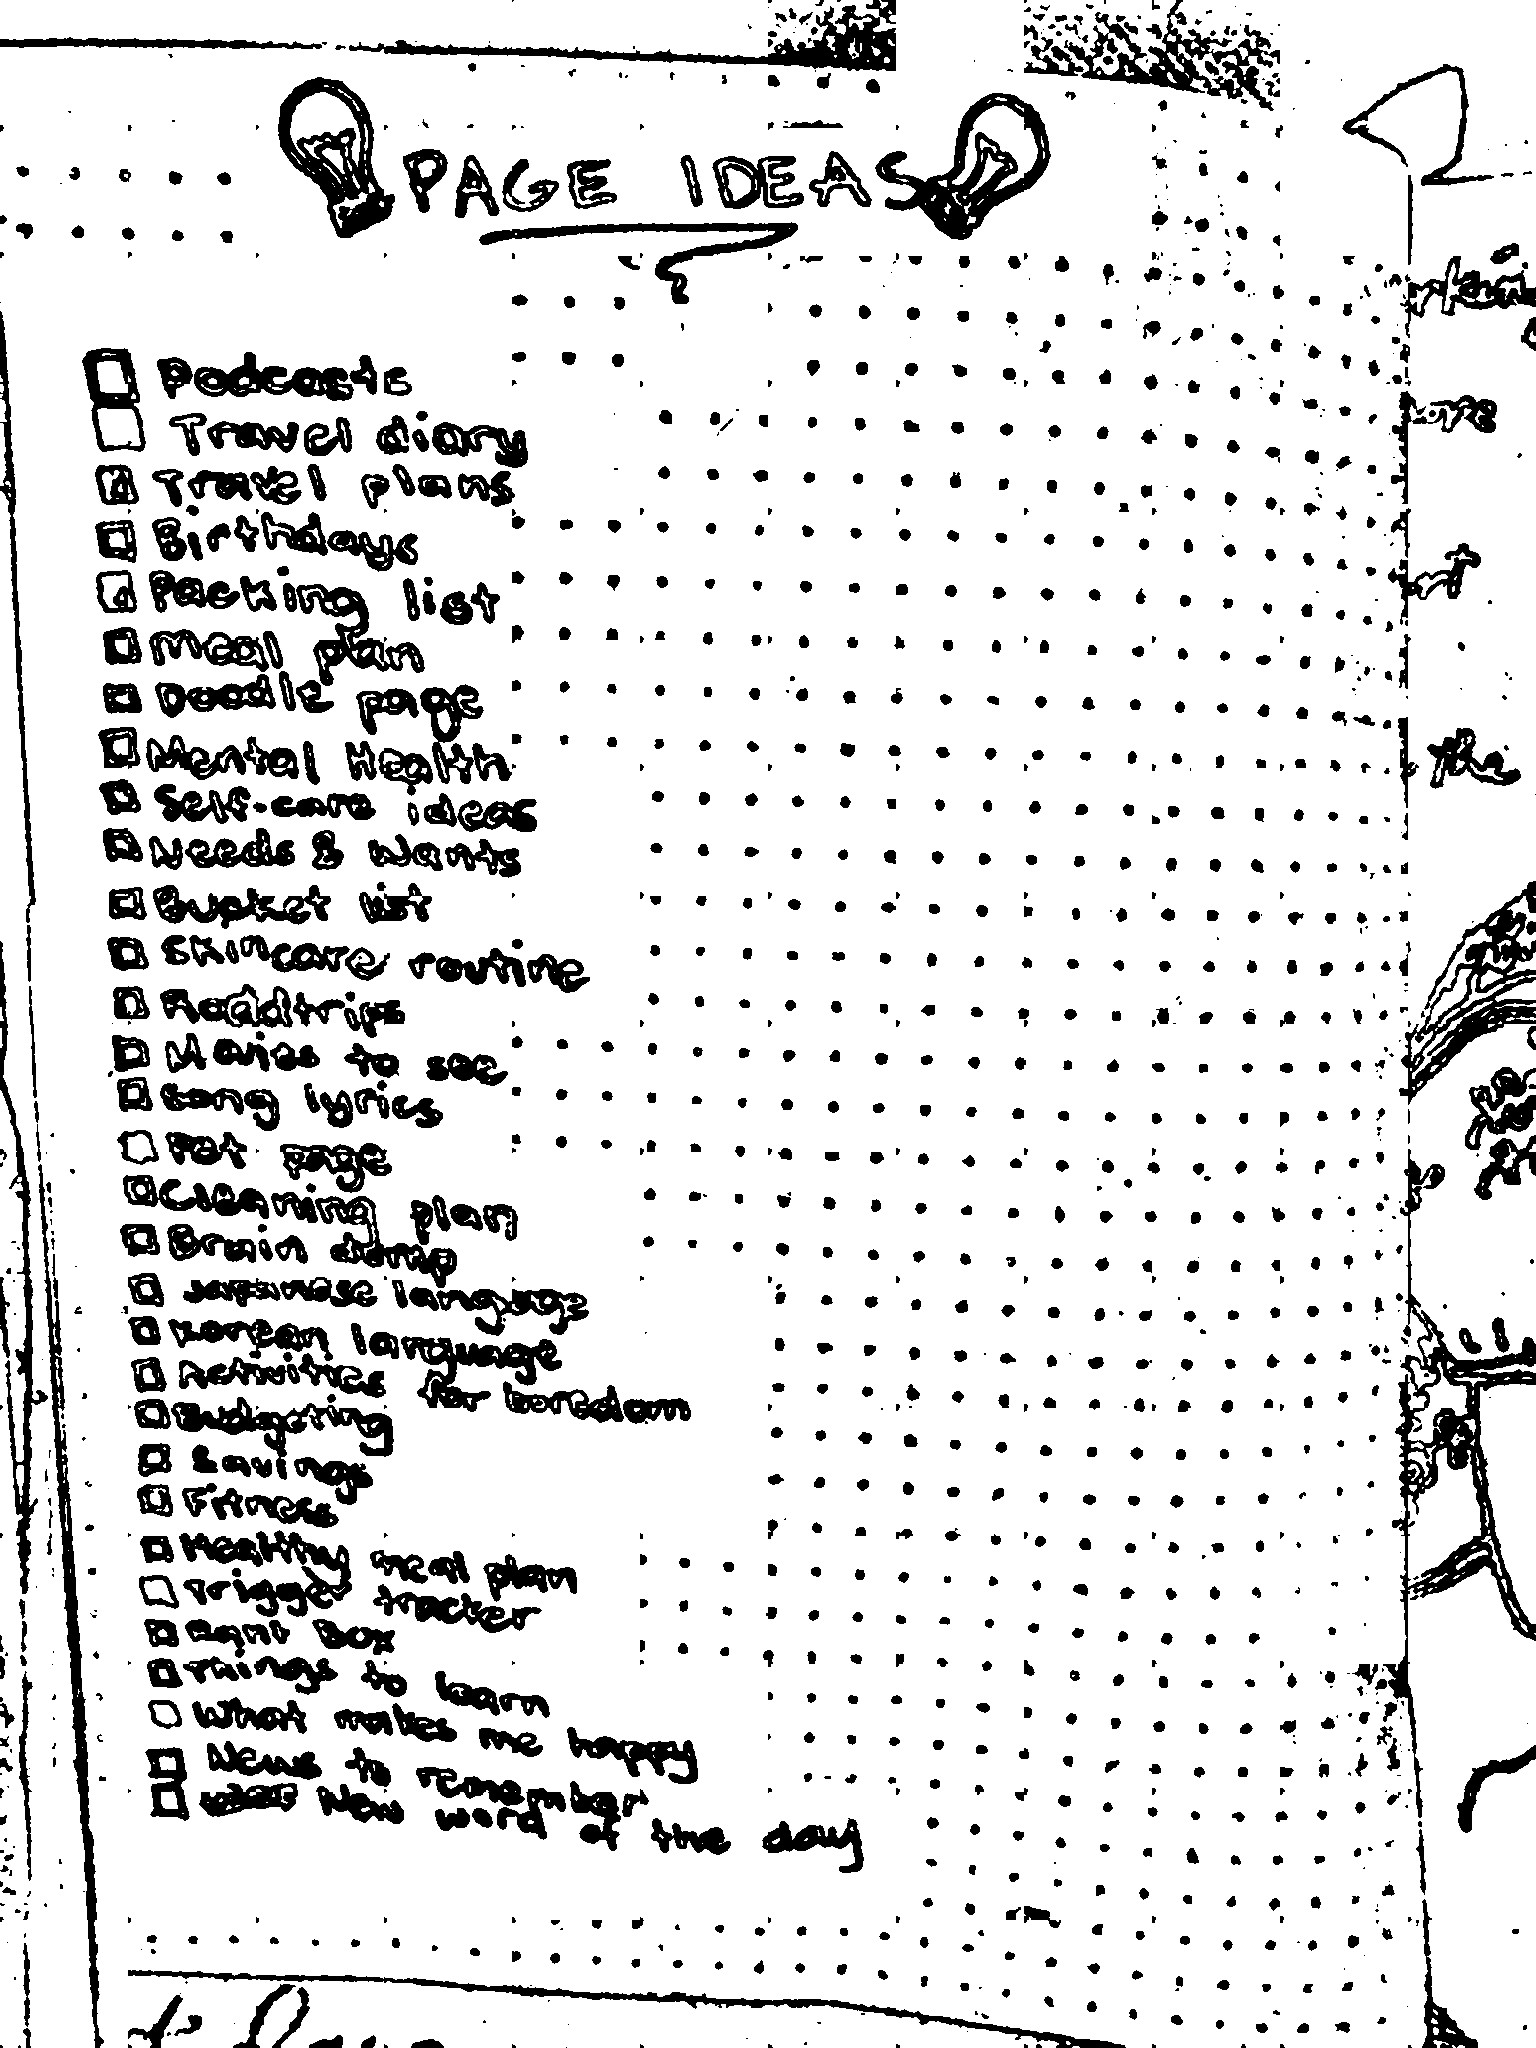 PAGE IDEAS
Podcasts
Travel diary
Travel plans
Birthdays
Packing list
Meal plan
Doodle page
Mental Health
Self-care ideas
Needs & Wants
Bucket list
Skincare routine
Roadtrips
Movies to see
Song lyrics
Pet page
Cleaning plan
Brain dump
Japanese language
Korean language
Activities for boredom
Budgeting
Savings
Fitness
Healthy meal plan
Trigger tracker
Rant Box
Things to learn
What makes me happy
News to remember
New word of the day
the